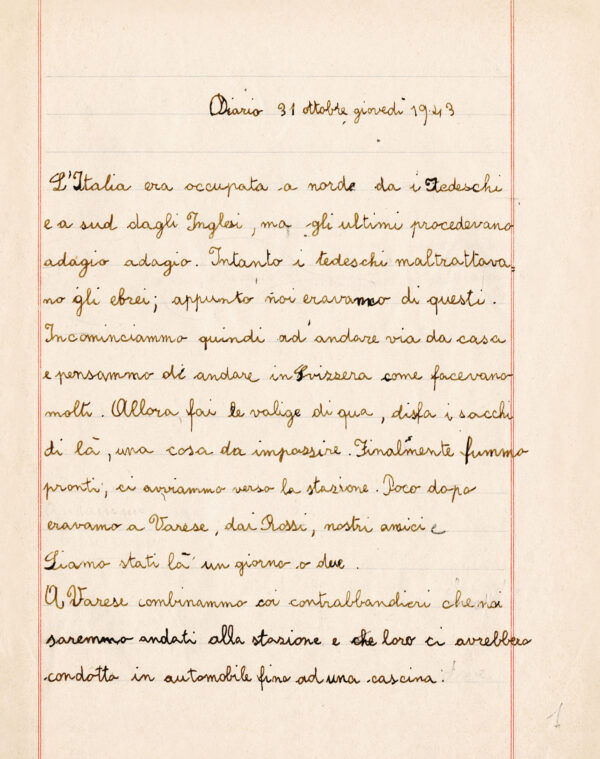 Diario 31 ottobre giovedì 1943
L'Italia era occupata a norde da i Tedeschi
e a sud dagli Inglesi, ma gli ultimi procedevano
adagio adagio. Intanto i tedeschi maltrattava,
no gli ebrei; appunto noi eravamo di questi.
Incominciammo quindi ad andare via da casa
e pensammo di andare in Svizzera come facevano
molti. Allora, fai le valige di qua, disfa i sacchi
di là, una cosa da impassire. Finalmente fummo
pronti, ci avviammo verso la stazione. Poco dopo
eravamo a Varese, dai Rossi, nostri amici e
Siamo stati là un giorno o due.
A Varese combinammo coi contrabbandieri che noi
saremmo andati alla stazione e che loro ci avrebbero
condotto in automobile fino ad una cascina.
1